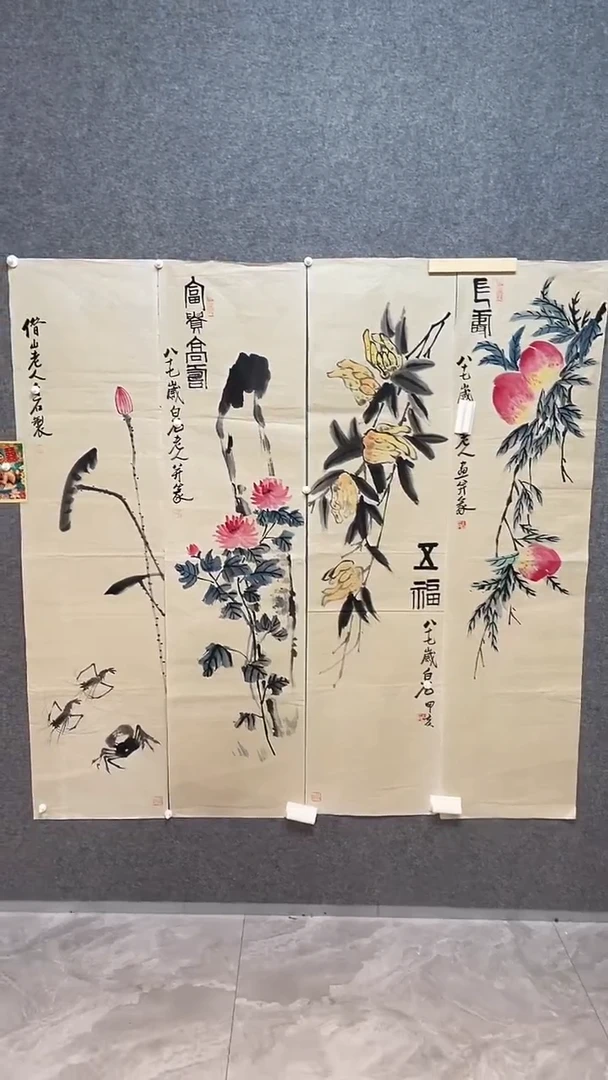 長壽
八十七歲
老人画并篆
五福
八十七歲白石
富貴高壽
八十七歲白石老人并篆
借山老人
石製